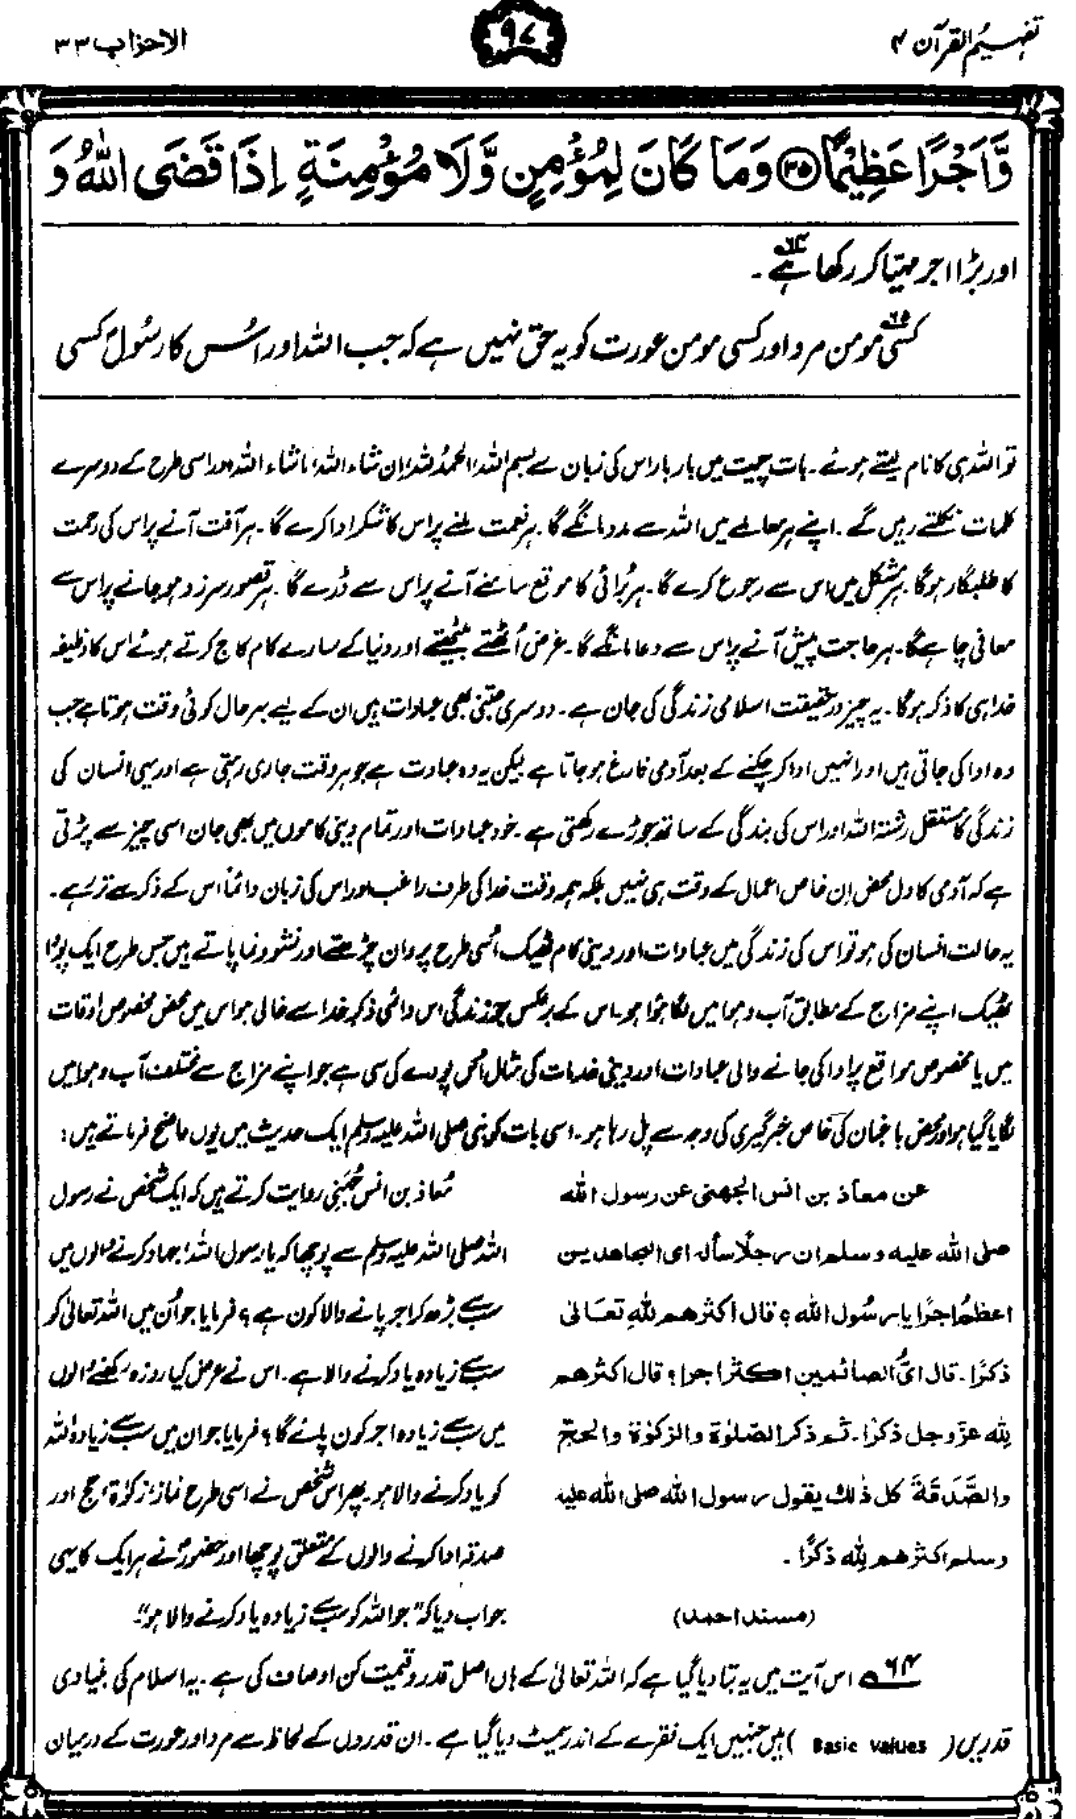 تفہیم القرآن ۴
۹۷
الاحزاب ۳۳
وَّاَجْرًا عَظِيْمًا ۳۵ وَمَا كَانَ لِمُؤْمِنٍ وَّلَا مُؤْمِنَةٍ اِذَا قَضَى اللّٰهُ وَ
اور بڑا اجر مہیا کر رکھا ہے۶۴۔
کسی۶۵ مومن مرد اور کسی مومن عورت کو یہ حق نہیں ہے کہ جب اللہ اور اُس کا رسُولؐ کسی
تو اللہ ہی کا نام لیتے ہوئے۔ بات چیت میں بار بار اس کی زبان سے بسم اللہ، الحمدُ للہ، اِن شاء اللہ، ماشاء اللہ اور اسی طرح کے دوسرے
کلمات نکلتے رہیں گے۔ اپنے ہر معاملے میں اللہ سے مدد مانگے گا۔ ہر نعمت ملنے پر اس کا شکر ادا کرے گا۔ ہر آفت آنے پر اس کی رحمت
کا طلبگار ہوگا۔ ہر مشکل میں اس سے رجوع کرے گا۔ ہر بُرائی کا موقع سامنے آنے پر اس سے ڈرے گا۔ ہر قصور سرزد ہو جانے پر اس سے
معافی چاہے گا۔ ہر حاجت پیش آنے پر اس سے دعا مانگے گا۔ غرض اُٹھتے بیٹھتے اور دنیا کے سارے کام کاج کرتے ہوئے اس کا وظیفہ
خدا ہی کا ذکر ہوگا۔ یہ چیز درحقیقت اسلامی زندگی کی جان ہے۔ دوسری جتنی بھی عبادات ہیں ان کے لیے بہرحال کوئی وقت ہوتا ہے جب
وہ ادا کی جاتی ہیں اور انہیں ادا کر چکنے کے بعد آدمی فارغ ہو جاتا ہے لیکن یہ وہ عبادت ہے جو ہر وقت جاری رہتی ہے اور یہی انسان کی
زندگی کا مستقل رشتہ اللہ اور اس کی بندگی کے ساتھ جوڑے رکھتی ہے۔ خود عبادات اور تمام دینی کاموں میں بھی جان اسی چیز سے پڑتی
ہے کہ آدمی کا دل محض اِن خاص اعمال کے وقت ہی نہیں بلکہ ہمہ وقت خدا کی طرف راغب اور اس کی زبان دائماً اس کے ذکر سے تر رہے۔
یہ حالت انسان کی ہو تو اس کی زندگی میں عبادات اور دینی کام ٹھیک اُسی طرح پروان چڑھتے اور نشوونما پاتے ہیں جس طرح ایک پودا
ٹھیک اپنے مزاج کے مطابق آب و ہوا میں لگا ہُوا ہو۔ اس کے برعکس جو زندگی اس دائمی ذکرِ خدا سے خالی ہو اس میں محض مخصوص اوقات
میں یا مخصوص مواقع پر ادا کی جانے والی عبادات اور دینی خدمات کی مثال اُس پودے کی سی ہے جو اپنے مزاج سے مختلف آب و ہوا میں
لگایا گیا ہو اور محض باغبان کی خاص خبرگیری کی وجہ سے پل رہا ہو۔ اسی بات کو نبی صلی اللہ علیہ وسلم ایک حدیث میں یوں واضح فرماتے ہیں:
عن معاذ بن انس الجهنى عن رسول الله
صلى الله عليه وسلم ان رجلًا سأله اى المجاهدين
اعظم اجرًا يا رسُول الله؟ قال اكثرهم لله تعالىٰ
ذكرًا۔ قال اىُّ الصائمين اكثر اجرا؟ قال اكثرهم
لله عزّ وجل ذكرًا۔ ثم ذكر الصّلوٰة والزكوٰة والحجّ
والصَّدَقَة كل ذٰلك يقول رسول الله صلى الله عليه
وسلم اكثرهم لله ذكرًا۔
(مسند احمد)
مُعاذ بن انس جُہَنِی روایت کرتے ہیں کہ ایک شخص نے رسول
اللہ صلی اللہ علیہ وسلم سے پوچھا کہ یا رسول اللہ! جہاد کرنے والوں میں
سب سے بڑھ کر اجر پانے والا کون ہے؟ فرمایا جو اُن میں اللہ تعالیٰ کو
سب سے زیادہ یاد کرنے والا ہے۔ اس نے عرض کیا روزہ رکھنے والوں
میں سب سے زیادہ اجر کون پائے گا؟ فرمایا جو ان میں سب سے زیادہ اللہ
کو یاد کرنے والا ہو۔ پھر اس شخص نے اسی طرح نماز، زکوٰۃ، حج اور
صدقہ ادا کرنے والوں کے متعلق پوچھا اور حضورؐ نے ہر ایک کا یہی
جواب دیا کہ "جو اللہ کو سب سے زیادہ یاد کرنے والا ہو"۔
۶۴ اس آیت میں یہ بتا دیا گیا ہے کہ اللہ تعالیٰ کے ہاں اصل قدر و قیمت کن اوصاف کی ہے۔ یہ اسلام کی بنیادی
قدریں ( Basic values ) ہیں جنہیں ایک فقرے کے اندر سمیٹ دیا گیا ہے۔ ان قدروں کے لحاظ سے مرد اور عورت کے درمیان